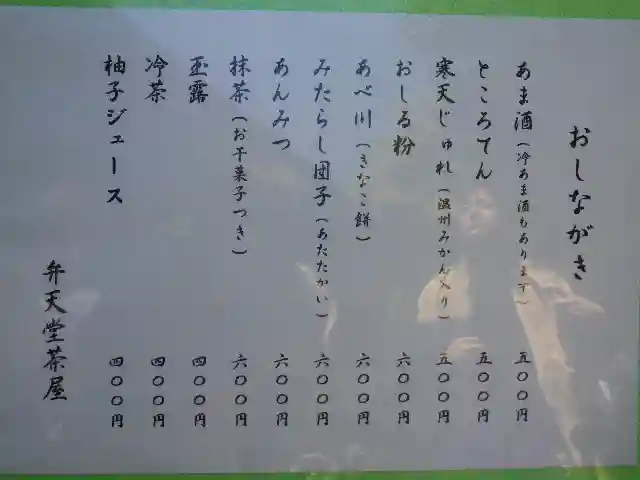 おしながき
あま酒(冷あま酒もあります) 五〇〇円
ところてん 五〇〇円
寒天じゅれ(温州みかん入り) 五〇〇円
おしる粉 六〇〇円
あべ川(きなこ餅) 六〇〇円
みたらし団子(あたたかい) 六〇〇円
あんみつ 六〇〇円
抹茶(お干菓子つき) 六〇〇円
玉露 四〇〇円
冷茶 四〇〇円
柚子ジュース 四〇〇円
弁天堂茶屋